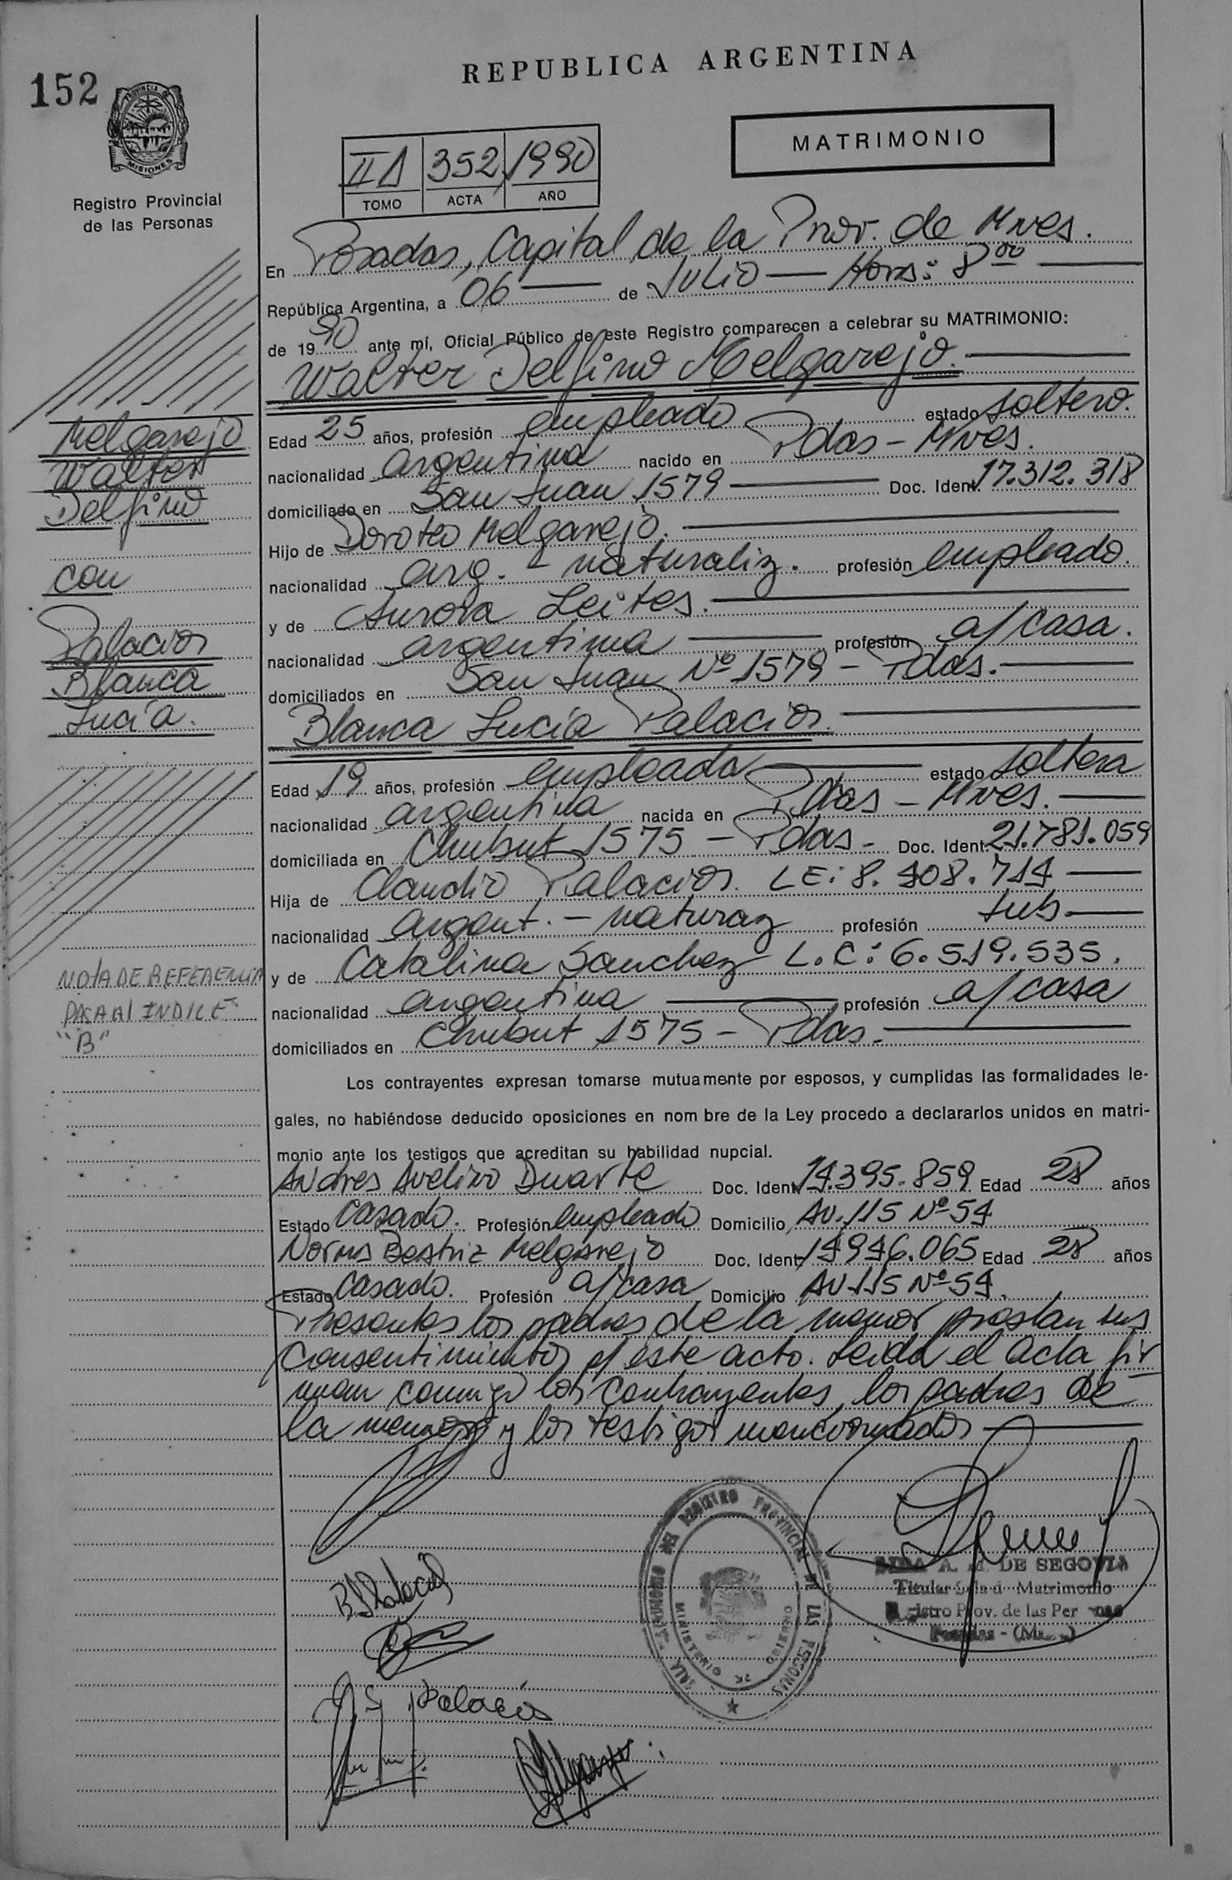 152
REPUBLICA ARGENTINA
PROVINCIA DE
MISIONES
Registro Provincial
de las Personas
MATRIMONIO
352 1990
TOMO ACTA AÑO
En Posadas, Capital de la Prov. de Mnes.
República Argentina, a 06 de Julio Hora: 8 00
de 1990 ante mí, Oficial Público de este Registro comparecen a celebrar su MATRIMONIO:
Walter Delfino Melgarejo.
Melgarejo
Walter
Delfino
con
Palacios
Blanca
Lucía.
Edad 25 años, profesión empleado estado soltero.
nacionalidad argentina nacido en Pdas - Mnes.
domiciliado en San Juan 1579 Doc. Ident. 17.312.318
Hijo de Doroteo Melgarejo.
nacionalidad arg. - naturaliz. profesión empleado.
y de Aurora Leites.
nacionalidad argentina profesión a/casa.
domiciliados en San Juan Nº 1579 - Pdas.
Blanca Lucía Palacios.
Edad 19 años, profesión empleada estado soltera
nacionalidad argentina nacida en Pdas - Mnes.
domiciliada en Chubut 1575 - Pdas - Doc. Ident. 21.781.059
Hija de Claudio Palacios. LE: 8.408.714
nacionalidad argent. - naturaz profesión Jub.
y de Catalina Sanchez L.C: 6.519.535.
nacionalidad argentina profesión a/casa
domiciliados en Chubut 1575 - Pdas.
NOTA DE REFERENCIA
PASA AL INDICE
"B"
Los contrayentes expresan tomarse mutuamente por esposos, y cumplidas las formalidades le-
gales, no habiéndose deducido oposiciones en nom bre de la Ley procedo a declararlos unidos en matri-
monio ante los testigos que acreditan su habilidad nupcial.
Andres Avelino Duarte Doc. Ident. 14.395.859 Edad 28 años
Estado Casado. Profesión empleado Domicilio Av. 115 Nº 54
Norma Beatriz Melgarejo Doc. Ident. 14946.065 Edad 28 años
Estado Casado. Profesión a/casa Domicilio Av 115 Nº 54.
Presentes los padres de la menor prestan sus
consentimientos p/ este acto. Leida el Acta fir
man conmigo los contrayentes, los padres de
la menor y los testigos mencionados
B. Palacios
Palacios
DEL REGISTRO PROVINCIAL DE LAS PERSONAS
MINISTERIO DE GOBIERNO
A. M. DE SEGOVIA
Titular Matrimonio
Registro Prov. de las Personas
Posadas -